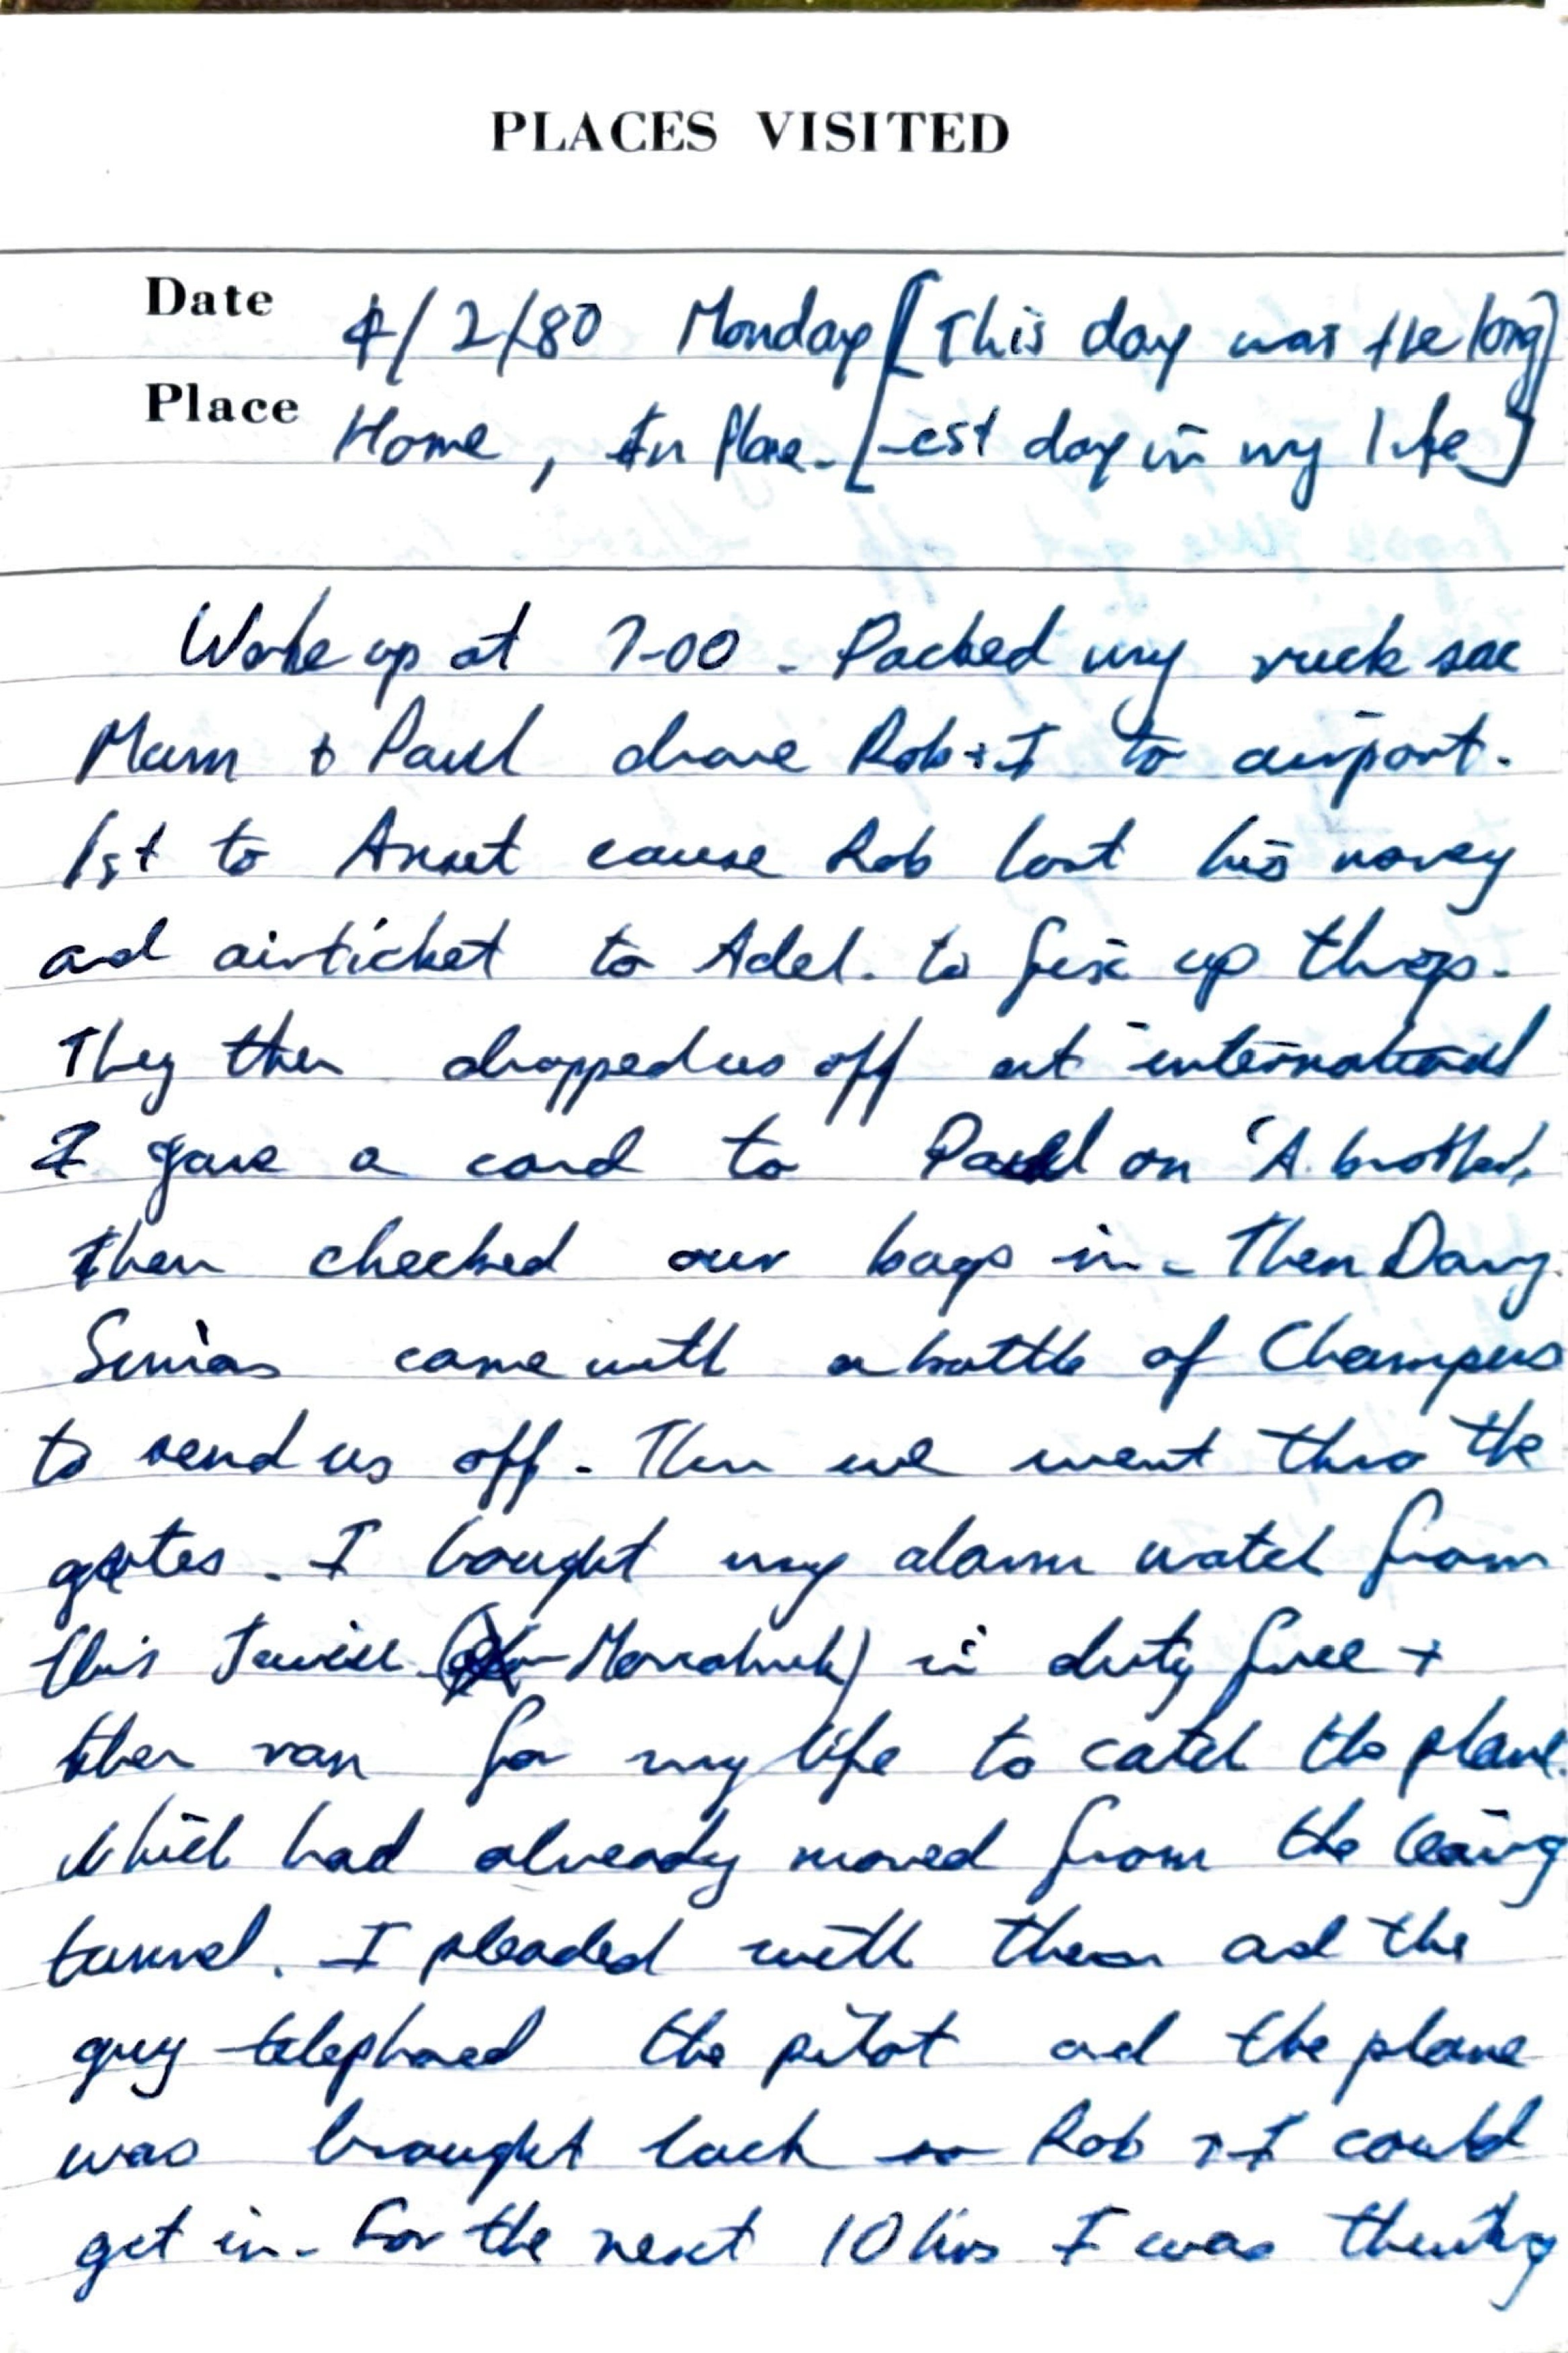 PLACES VISITED
Date 4/2/80 Monday [This day was the long]
Place Home, In Plane. [-est day in my life]
Woke up at 7-00. Packed my ruck sac
Mum + Paul drove Rob + I to airport.
1st to Ansett cause Rob lost his money
and airticket to Adel. to fix up things.
They then dropped us off at international
I gave a card to Paul on 'A. brother,
then checked our bags in. Then Dany
came with a bottle of Champus
to send us off. Then we went thro the
gates. I bought my alarm watch from
this in duty free +
then ran for my life to catch the plane.
which had already moved from the leaving
tunnel. I pleaded with them and the
guy telephoned the pilot and the plane
was brought back so Rob + I could
get in. For the next 10 hrs I was thinking